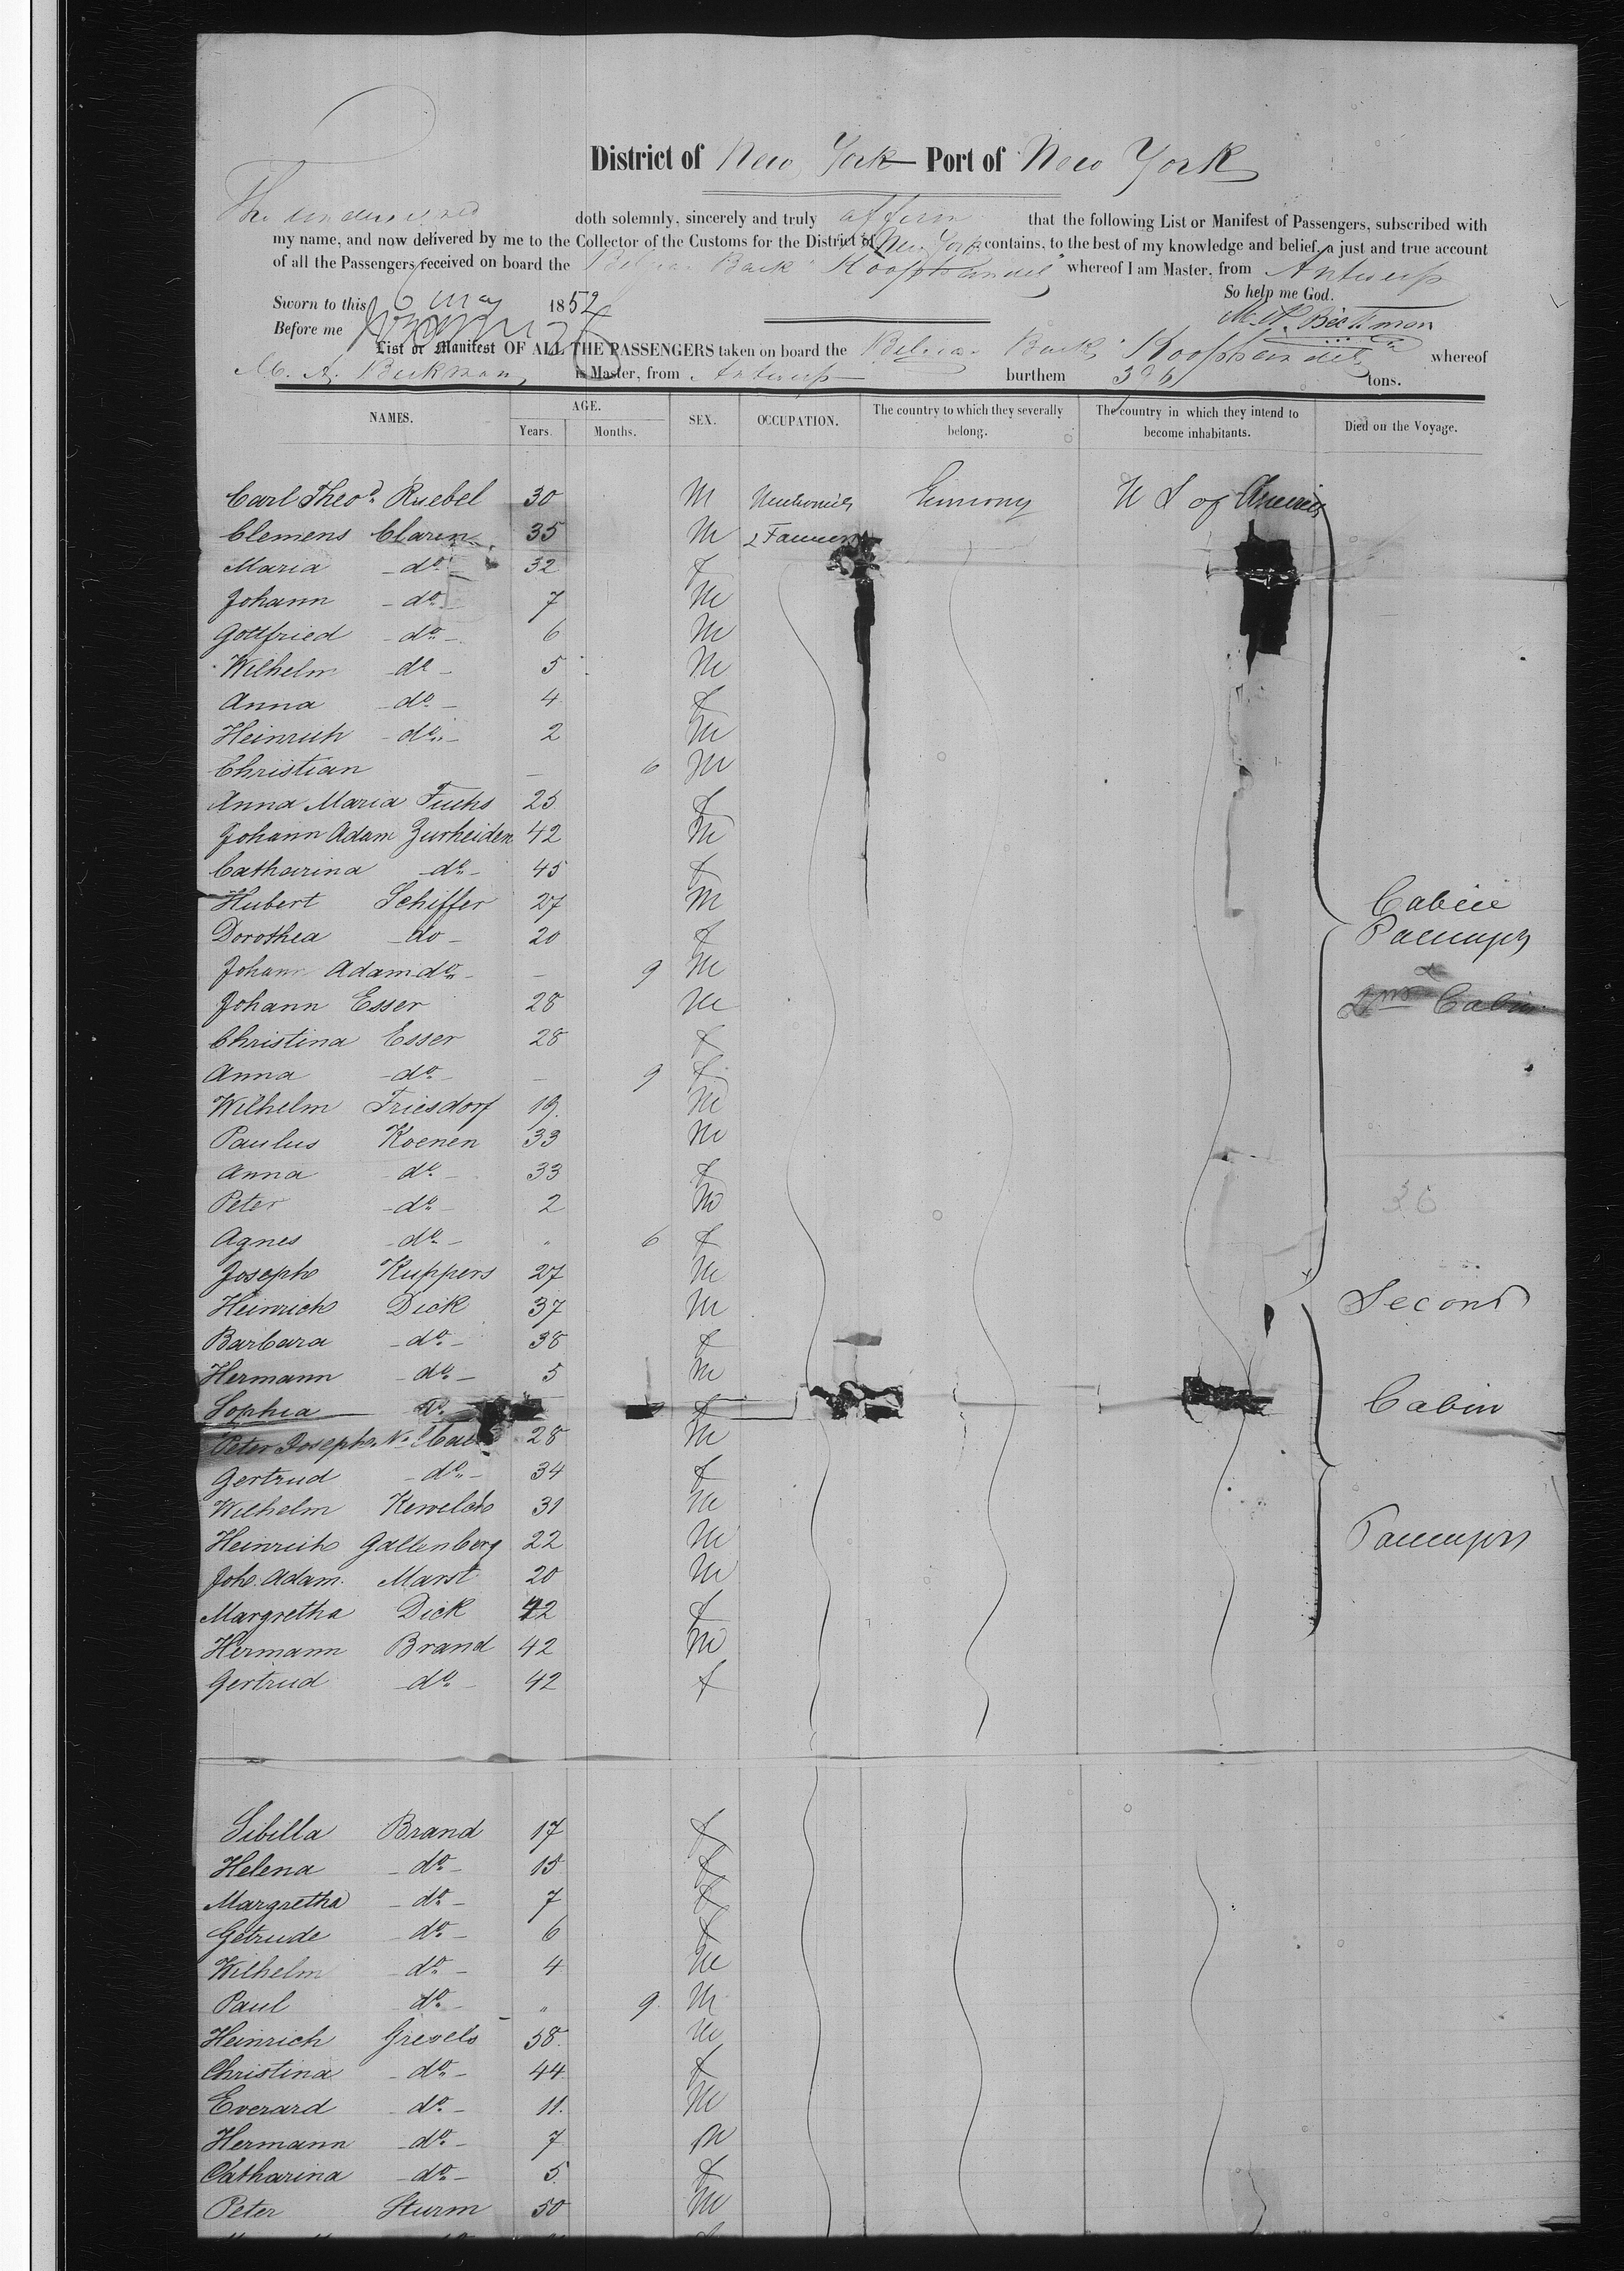 District of New York Port of New York
The undersigned doth solemnly, sincerely and truly affirm that the following List or Manifest of Passengers, subscribed with
my name, and now delivered by me to the Collector of the Customs for the District of New York contains, to the best of my knowledge and belief, a just and true account
of all the Passengers received on board the Belgian Bark "Koophandel" whereof I am Master, from Antwerp
So help me God.
Sworn to this 6 may 1852
Before me
List or Manifest OF ALL THE PASSENGERS taken on board the Belgian Bark Koophandel whereof
M. A. Beekman is Master, from Antwerp burthem tons.
NAMES. AGE. SEX. OCCUPATION. The country to which they severally belong. The country in which they intend to become inhabitants. Died on the Voyage.
Years. Months.
Carl Theod. Ruebel 30 M Germany U S of America
Clemens Claren 35 M & Farmers
Maria do 32 f
Johann do 7 M
Gottfried do 6 M
Wilhelm do 5 M
Anna do 4 f
Heinrich do 2 M
Christian — 6 M
Anna Maria Fuchs 25 f
Johann Adam Zurheiden 42 M
Catharina do 45 f
Hubert Schiffer 27 M Cabin
Dorothea do 20 f Passengers
Johann Adam do — 9 M &
Johann Esser 28 M 2nd Cabin
Christina Esser 28 f
Anna do — 9 f
Wilhelm Friesdorf 19. M
Paulus Koenen 33 M
Anna do 33 f
Peter do 2 M
Agnes do " 6 f
Joseph Kuppers 27 M
Heinrich Dick 37 M Second
Barbara do 38 f
Hermann do 5 M
Sophia do f Cabin
Peter Joseph 28 M
Gertrud do 34 f
Wilhelm 31 M
Heinrich Gallenberg 22 M Passengers
Joh. Adam. Marst 20 M
Margretha Dick 42 f
Hermann Brand 42 M
Gertrud do 42 f
Sibilla Brand 17 f
Helena do 15 f
Margretha do 7 f
Getrude do 6 f
Wilhelm do 4 M
Paul do " 9 M
Heinrich Grevels 58 M
Christina do 44 f
Everard do 11. M
Hermann do 7 M
Catharina do 5 f
Peter Sturm 50 M